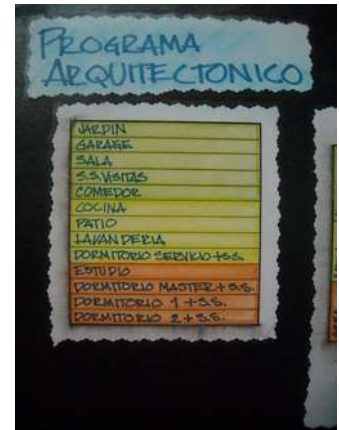 PROGRAMA
ARQUITECTONICO
JARDIN
GARAGE
SALA
S.S. VISITAS
COMEDOR
COCINA
PATIO
LAVANDERIA
DORMITORIO SERVICIO + S.S.
ESTUDIO
DORMITORIO MASTER + S.S.
DORMITORIO 1 + S.S.
DORMITORIO 2 + S.S.